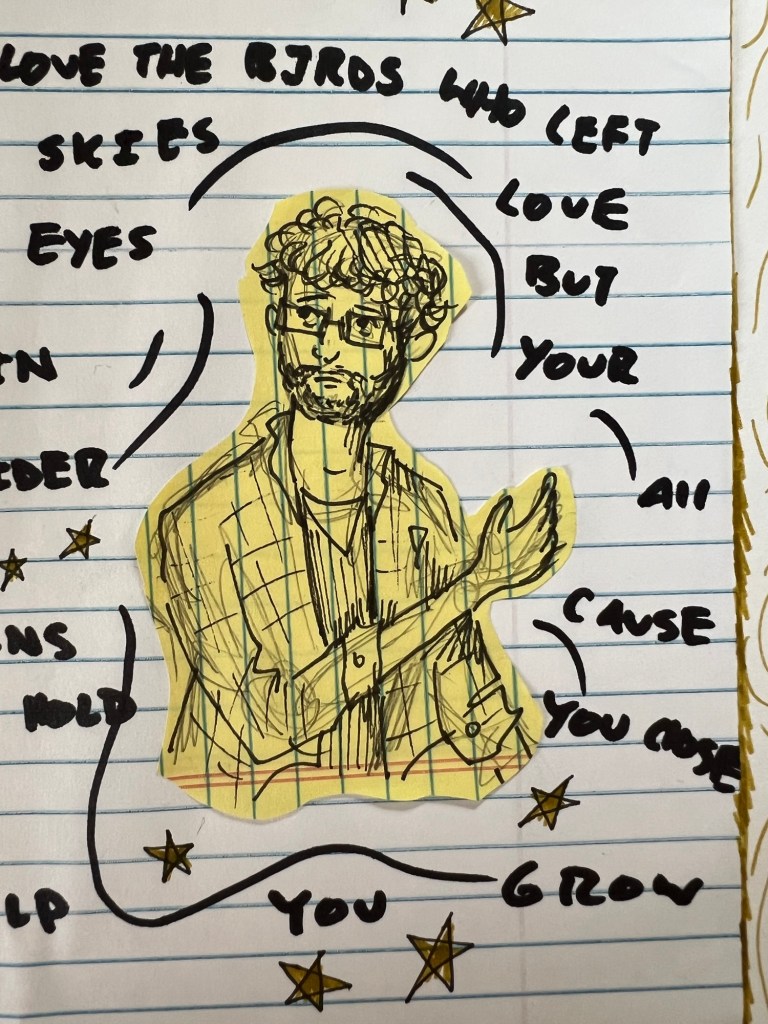 LOVE THE BIRDS WHO LEFT
SKIES
LOVE
EYES
BUT
IN
YOUR
IDER
All
CAUSE
NS
HOLD
YOU
LP
YOU
GROW